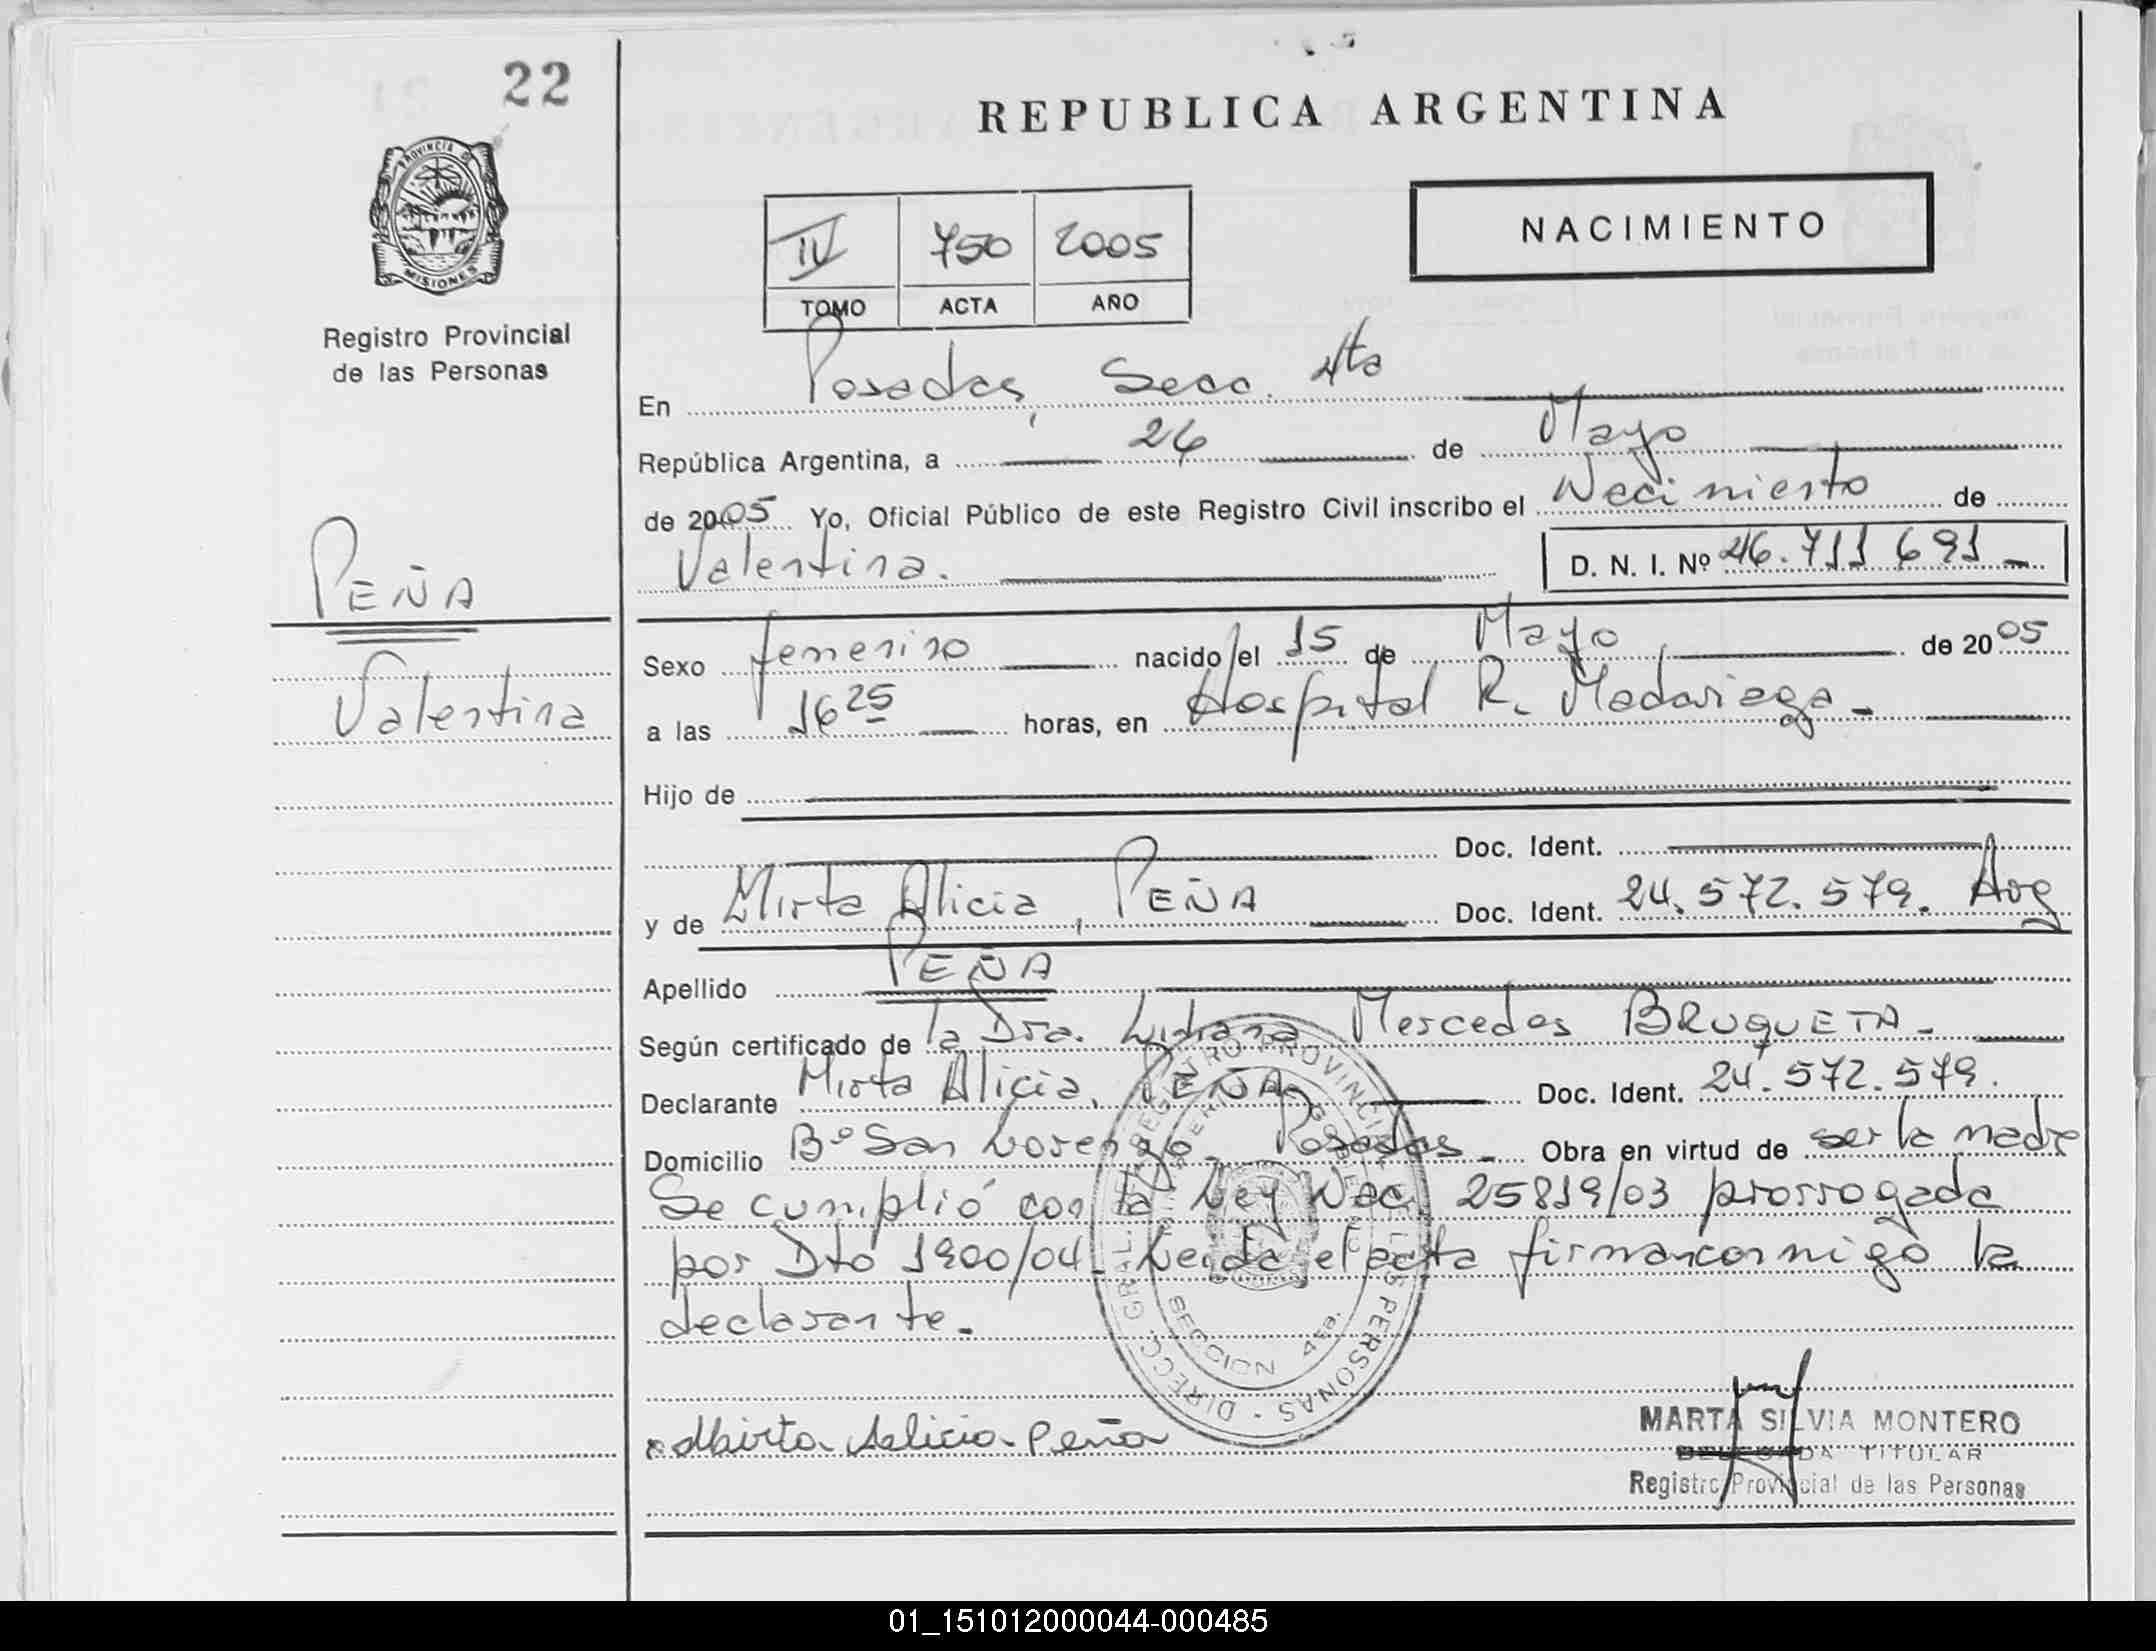 22
REPUBLICA ARGENTINA
PROVINCIA DE
MISIONES
Registro Provincial
de las Personas
IV 750 2005
TOMO ACTA AÑO
NACIMIENTO
En Posadas, Secc. 4ta
República Argentina, a 24 de Mayo
de 2005 Yo, Oficial Público de este Registro Civil inscribo el Nacimiento de
Valentina. D. N. I. Nº 46.711 691
PEÑA
Valentina
Sexo femenino nacido el 15 de Mayo de 2005
a las 16 25 horas, en Hospital R. Madariaga
Hijo de
Doc. Ident.
y de Mirta Alicia, PEÑA Doc. Ident. 24.572.579. Arg
Apellido PEÑA
Según certificado de la Dra. Mercedes BRUQUETA
Declarante Mirta Alicia, PEÑA Doc. Ident. 24.572.579.
Domicilio Bº San Lorenzo Posadas Obra en virtud de ser la madre
Se cumplió con la Ley Nac. 25819/03 prorrogada
por Dto 1900/04. Leida el acta firman conmigo la
declarante.
DIRECC. GRAL. REGISTRO PROVINCIAL DE LAS PERSONAS
SECCION 4ta.
Mirta Alicia Peña
MARTA SILVIA MONTERO
DELEGADA TITULAR
Registro Provincial de las Personas
01_151012000044-000485